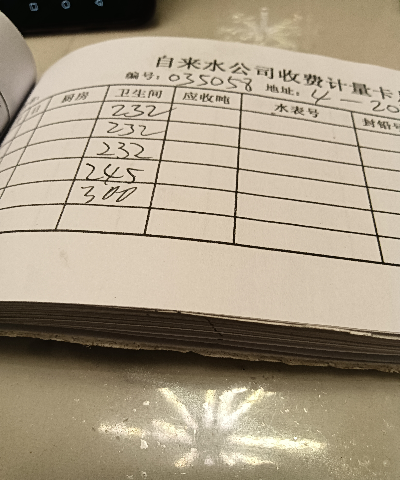 自来水公司收费计量卡
编号: 035058 地址: 4-20
厨房 卫生间 应收吨 水表号 封铅号
232
232
232
245
300